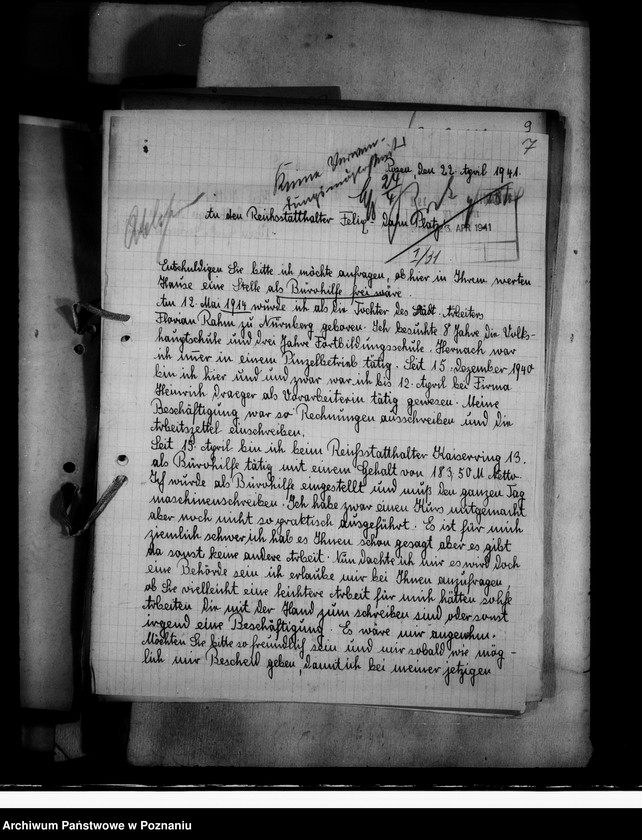 9
7
Keine Verwen-
dungsmöglichkeit
Posen, den 22. April 1941.
24/4
APR 1941
An den Reichsstatthalter Felix-Dahn Platz
I/31
Entschuldigen Sie bitte ich möchte anfragen, ob hier in Ihrem werten
Hause eine Stelle als Bürohilfe frei wäre.
Am 12. Mai 1914 wurde ich als die Tochter des Städt. Arbeiters
Florian Rahm zu Nürnberg geboren. Ich besuchte 8 Jahre die Volks-
hauptschule und drei Jahre Fortbildungsschule. Hernach war
ich immer in einem Pinzelbetrieb tätig. Seit 15. Dezember 1940
bin ich hier und und zwar war ich bis 12. April bei Firma
Heinrich Draeger als Vorarbeiterin tätig gewesen. Meine
Beschäftigung war so Rechnungen ausschreiben und die
Arbeitszettel einschreiben.
Seit 15. April bin ich beim Reichsstatthalter Kaiserring 13.
als Bürohilfe tätig mit einem Gehalt von 183,50 M Netto.
Ich wurde als Bürohilfe eingestellt und muß den ganzen Tag
maschinenschreiben. Ich habe zwar einen Kurs mitgemacht
aber noch nicht so praktisch ausgeführt. Es ist für mich
ziemlich schwer ich hab es Ihnen schon gesagt aber es gibt
da sonst keine andere Arbeit. Nun dachte ich mir es wird doch
eine Behörde sein ich erlaube mir bei Ihnen anzufragen,
ob Sie vielleicht eine leichtere Arbeit für mich hätten solche
Arbeiten die mit der Hand zum schreiben sind oder sonst
irgend eine Beschäftigung. Es wäre mir angenehm.
Möchten Sie bitte so freundlich sein und mir sobald wie mög-
lich mir Bescheid geben, damit ich bei meiner jetzigen
Archiwum Państwowe w Poznaniu